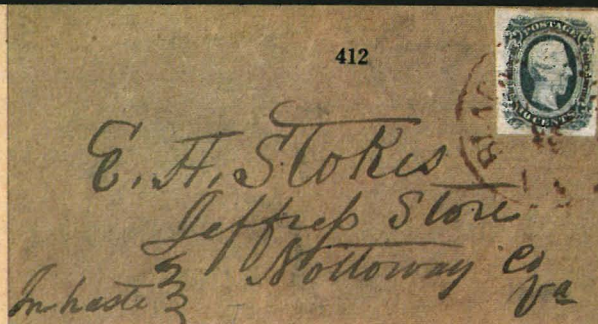 412
POSTAGE
CENTS
E. H. Stokes
Jeffress Store
Nottoway Co
Va
In haste